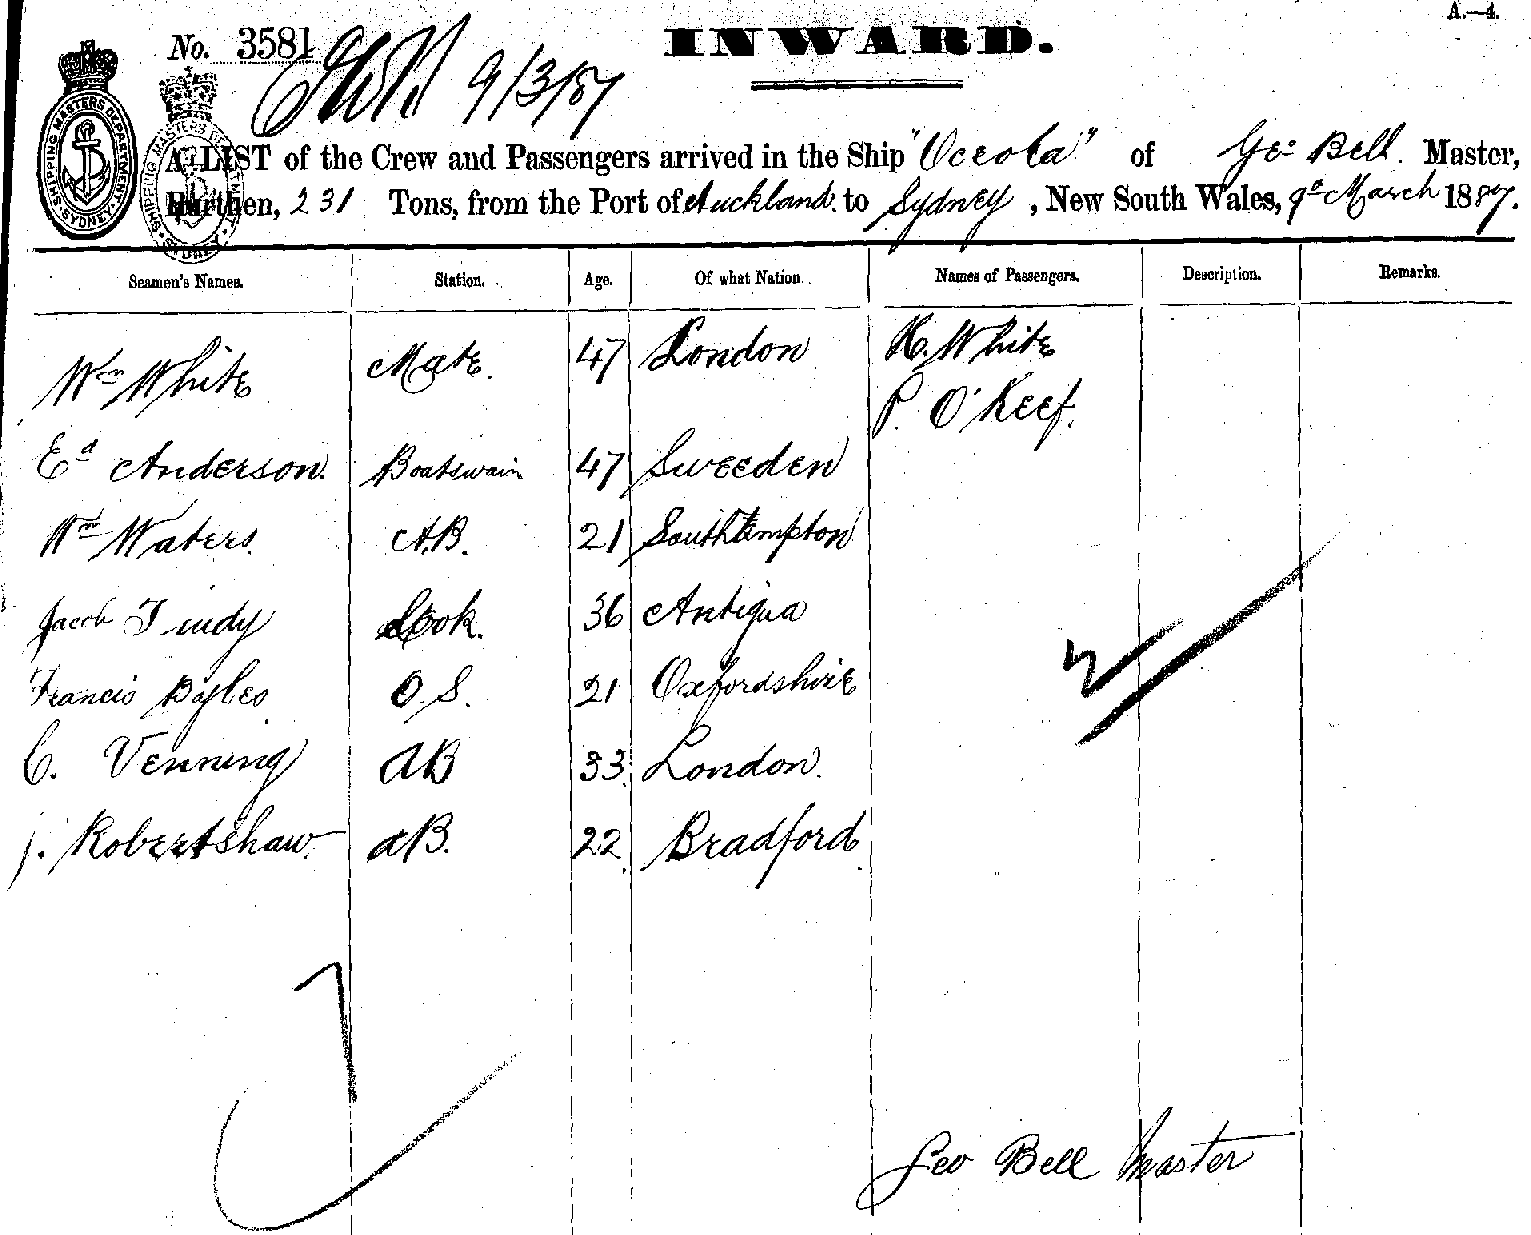 A.—4.
No. 3581
INWARD.
9/3/87
SHIPPING MASTERS DEPARTMENT
A LIST of the Crew and Passengers arrived in the Ship "Oceola" of Geo Bell. Master,
Burthen, 231 Tons, from the Port of Auckland. to Sydney, New South Wales, 9th March 1887.
Seamen's Names. Station. Age. Of what Nation. Names of Passengers. Description. Remarks.
Wm White Mate. 47 London H. White
P. O'Keef.
Ed Anderson. Boatswain 47 Sweeden
Wm Waters. A.B. 21 Southtempton
Jacob Cook. 36 Antigua
Francis O S. 21 Oxfordshire
C. Venning AB 33 London.
J. Robertshaw. aB. 22 Bradford.
7
2
Geo Bell Master